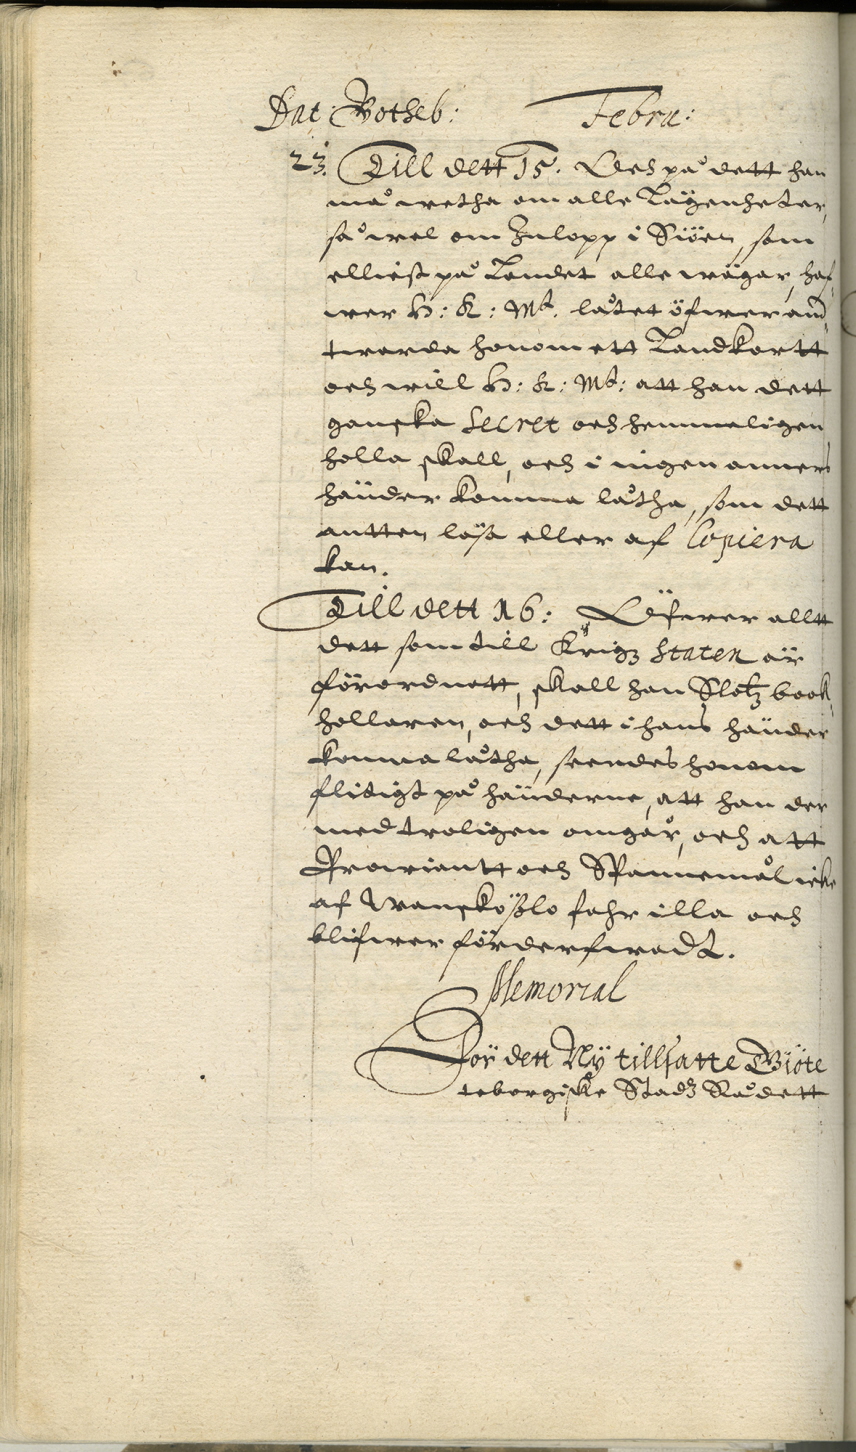 Dat: Gotheb: Febru:
23. Till dett 15. Och på dett han
må wetha om alle Lägenheter,
så wel om Inlopp i Siöen, som
elliest på Landet alle wägar, haf¬
wer H: K: Mt. låtet öfwerand¬
twarda honom ett Landkortt
och will H: K: Mt: att han dett
ganska Secret och hemmeligen
holla skall, och i ingen anners
händer komma låtha, som dett
antten läsa eller af Copiera
kan.
Till dett 16: Öfwer allt
dett som till Krigz Staten är
förordnett, skall han Slotz book¬
hollaren, och dett i hans händer
komma låtha, seendes honom
flitigt på händerne, att han der
med troligen omgår, och att
Prowiantt och Spannemål icke
af Wanskötzlo fahr illa och
blifwer förderfwadt.
Memorial
För dett Ny tillsatte Giöte
teborgiske Stadz Rådett